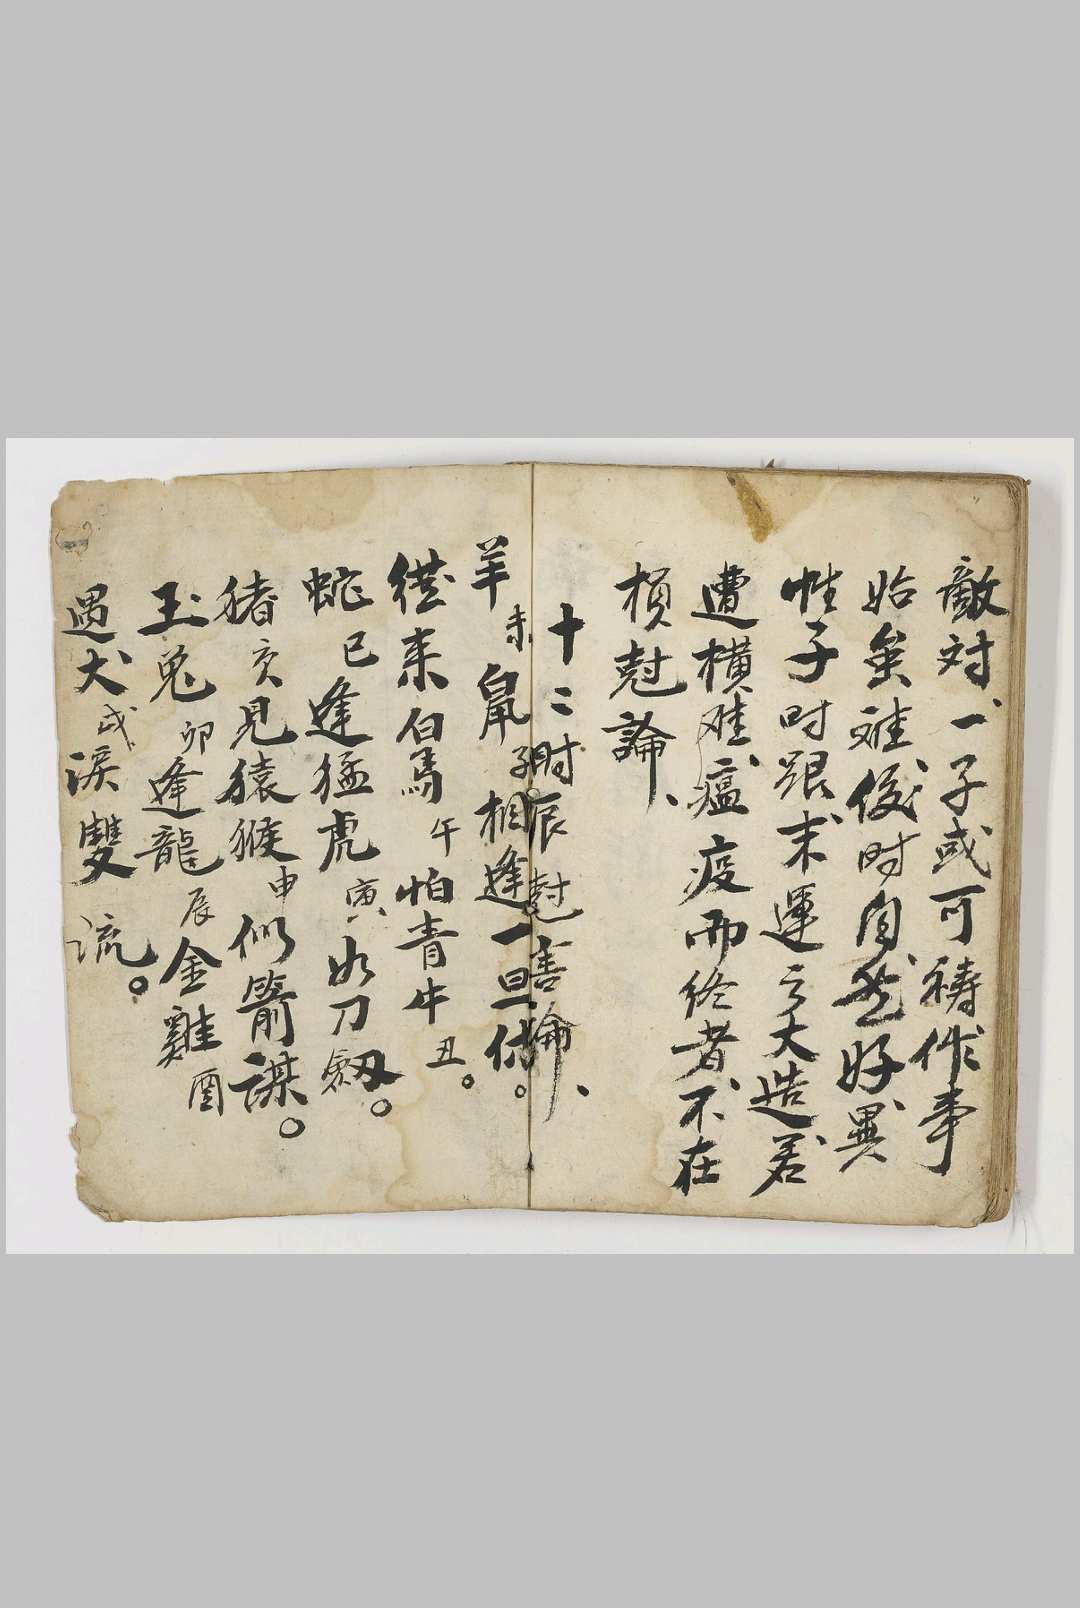 敵对、一子或可祷作事
始虽难後时自然好異
惟子时跟末運之大造若
遭横难瘟疫而终者不在
損尅論、
十二时辰尅害論、
羊未鼠子相逢一旦休。
從来白馬午怕青牛丑。
蛇巳逢猛虎寅如刀劔。
猪亥見猿猴申似箭謀。
玉兎卯逢龍辰金雞酉
遇犬戌淚雙流。